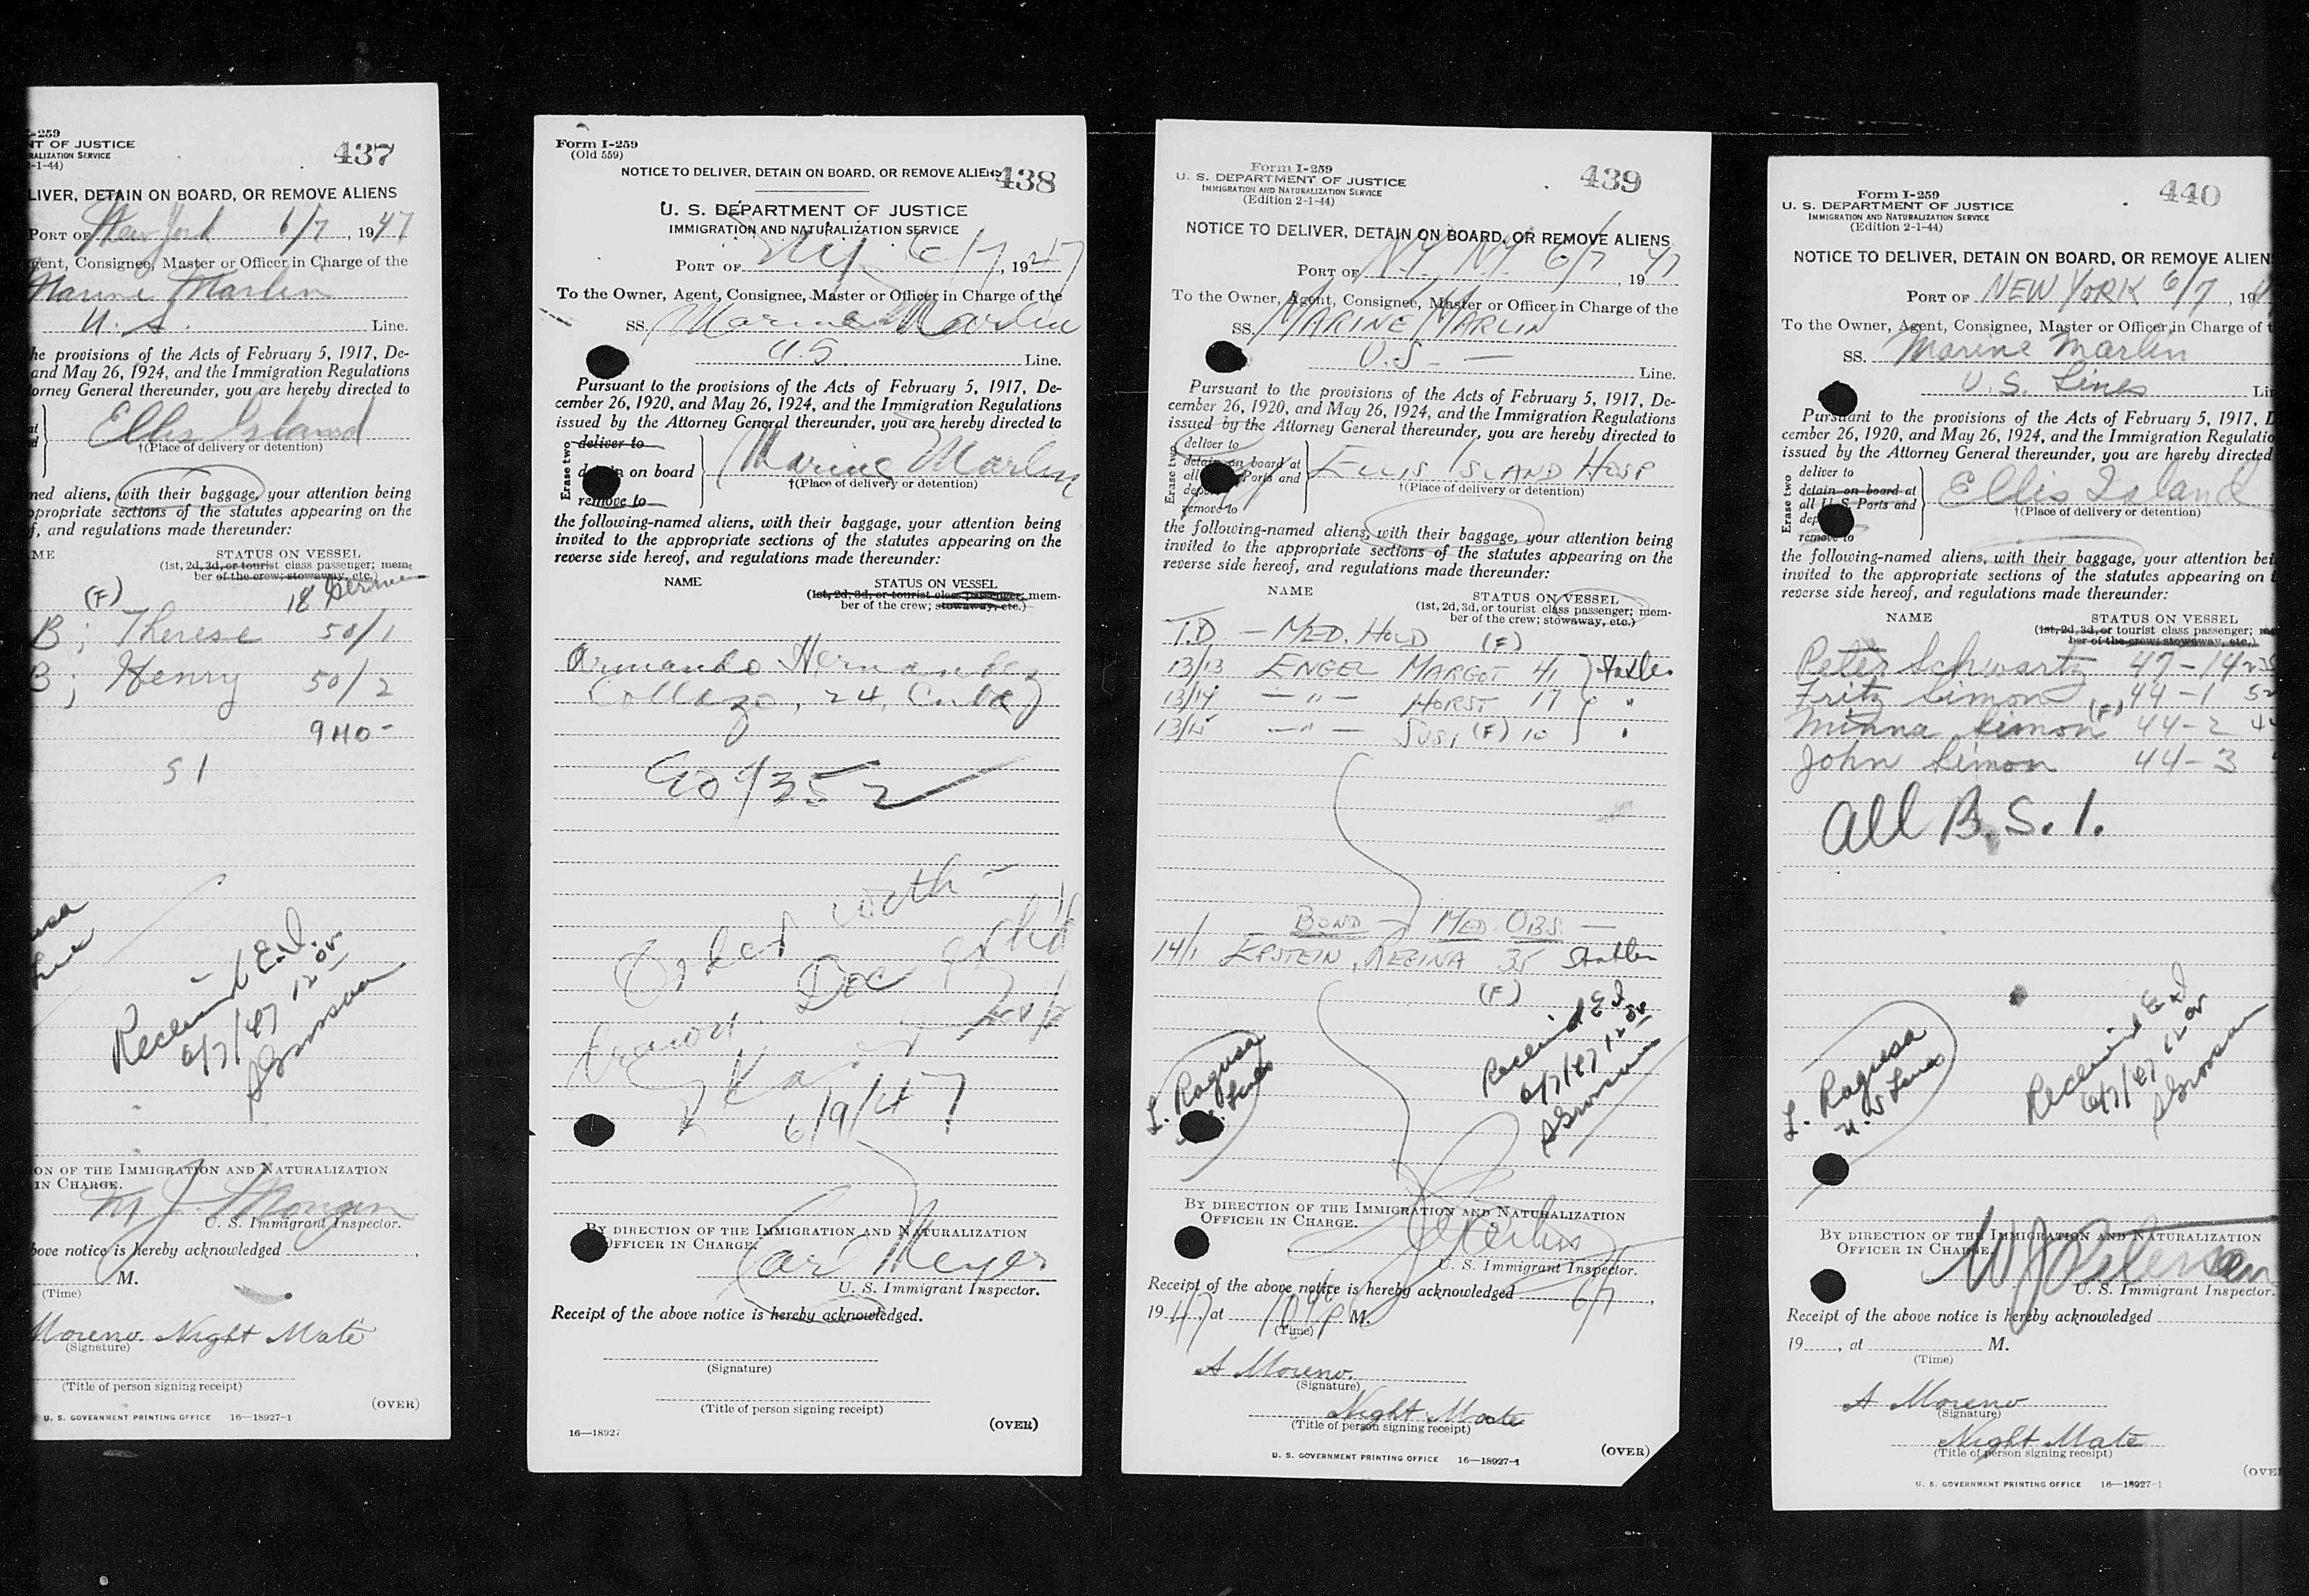 -259
NT OF JUSTICE
RALIZATION SERVICE
-1-44)
437
LIVER, DETAIN ON BOARD, OR REMOVE ALIENS
PORT OF New York 6/7, 1947
gent, Consignee, Master or Officer in Charge of the
Marine Marlin
U. S. Line.
he provisions of the Acts of February 5, 1917, De-
and May 26, 1924, and the Immigration Regulations
orney General thereunder, you are hereby directed to
Ellis Island
†(Place of delivery or detention)
med aliens, with their baggage, your attention being
propriate sections of the statutes appearing on the
f, and regulations made thereunder:
ME STATUS ON VESSEL
(1st, 2d, 3d, or tourist class passenger; mem-
ber of the crew; stowaway, etc.)
(F) 18 German
B; Therese 50/1
B; Henry 50/2
9110-
S I
Received E.I.
6/7/47 12 05
ON OF THE IMMIGRATION AND NATURALIZATION
IN CHARGE.
M J
U. S. Immigrant Inspector.
bove notice is hereby acknowledged
M.
(Time)
Moreno Night Mate
(Signature)
(Title of person signing receipt)
(OVER)
U. S. GOVERNMENT PRINTING OFFICE 16—18927-1
Form I-259
(Old 559)
NOTICE TO DELIVER, DETAIN ON BOARD, OR REMOVE ALIENS
438
U. S. DEPARTMENT OF JUSTICE
IMMIGRATION AND NATURALIZATION SERVICE
PORT OF NY 6/7, 1947
To the Owner, Agent, Consignee, Master or Officer in Charge of the
SS. Marine Marlin
U.S Line.
Pursuant to the provisions of the Acts of February 5, 1917, De-
cember 26, 1920, and May 26, 1924, and the Immigration Regulations
issued by the Attorney General thereunder, you are hereby directed to
Erase two
deliver to
detain on board
remove to
Marine Marlin
†(Place of delivery or detention)
the following-named aliens, with their baggage, your attention being
invited to the appropriate sections of the statutes appearing on the
reverse side hereof, and regulations made thereunder:
NAME STATUS ON VESSEL
(1st, 2d, 3d, or tourist class passenger; mem-
ber of the crew; stowaway, etc.)
Armando Hernandez
Collazo, 24, Cuba
6/9/47
BY DIRECTION OF THE IMMIGRATION AND NATURALIZATION
OFFICER IN CHARGE.
Carl Meyer
U. S. Immigrant Inspector.
Receipt of the above notice is hereby acknowledged.
(Signature)
(Title of person signing receipt)
(OVER)
16—18927
Form I-259
U. S. DEPARTMENT OF JUSTICE
IMMIGRATION AND NATURALIZATION SERVICE
(Edition 2-1-44)
439
NOTICE TO DELIVER, DETAIN ON BOARD, OR REMOVE ALIENS
PORT OF N.Y. N.Y. 6/7 1947
To the Owner, Agent, Consignee, Master or Officer in Charge of the
SS. MARINE MARLIN
U.S — Line.
Pursuant to the provisions of the Acts of February 5, 1917, De-
cember 26, 1920, and May 26, 1924, and the Immigration Regulations
issued by the Attorney General thereunder, you are hereby directed to
Erase two
deliver to
detain on board at
all Ports and
remove to
ELLIS ISLAND HOSP
†(Place of delivery or detention)
the following-named aliens, with their baggage, your attention being
invited to the appropriate sections of the statutes appearing on the
reverse side hereof, and regulations made thereunder:
NAME STATUS ON VESSEL
(1st, 2d, 3d, or tourist class passenger; mem-
ber of the crew; stowaway, etc.)
T.D — MED. HOLD (F)
13/13 ENGEL MARGOT 41
13/14 — " — HORST 17 "
13/15 — " — SUSI (F) 10 "
BOND — MED. OBS. —
14/1 EPSTEIN, REGINA 35
(F)
Received E I
6/7/47 12 05
L. Ragusa
BY DIRECTION OF THE IMMIGRATION AND NATURALIZATION
OFFICER IN CHARGE.
U. S. Immigrant Inspector.
Receipt of the above notice is hereby acknowledged 6/7,
1947, at M.
(Time)
A Moreno.
(Signature)
Night Mate
(Title of person signing receipt)
(OVER)
U. S. GOVERNMENT PRINTING OFFICE 16—18927-1
Form I-259
U. S. DEPARTMENT OF JUSTICE
IMMIGRATION AND NATURALIZATION SERVICE
(Edition 2-1-44)
440
NOTICE TO DELIVER, DETAIN ON BOARD, OR REMOVE ALIEN
PORT OF NEW YORK 6/7, 19
To the Owner, Agent, Consignee, Master or Officer in Charge of t
SS. Marine Marlin
U.S. Lines Li
Pursuant to the provisions of the Acts of February 5, 1917, D
cember 26, 1920, and May 26, 1924, and the Immigration Regulatio
issued by the Attorney General thereunder, you are hereby directed
Erase two
deliver to
detain on board at
all U.S. Ports and
dep
remove to
Ellis Island
†(Place of delivery or detention)
the following-named aliens, with their baggage, your attention bei
invited to the appropriate sections of the statutes appearing on t
reverse side hereof, and regulations made thereunder:
NAME STATUS ON VESSEL
(1st, 2d, 3d, or tourist class passenger; me
ber of the crew; stowaway, etc.)
Peter Schwartz 47-14
Fritz Simon 44-1 52
Minna Simon (F) 44-2
John Simon 44-3
All B.S.I.
L. Ragusa
U.S Lines
Received E I
6/7/47 12 05
BY DIRECTION OF THE IMMIGRATION AND NATURALIZATION
OFFICER IN CHARGE.
U. S. Immigrant Inspector.
Receipt of the above notice is hereby acknowledged
19, at M.
(Time)
A Moreno
(Signature)
Night Mate
(Title of person signing receipt)
(OVE
U. S. GOVERNMENT PRINTING OFFICE 16—18927-1